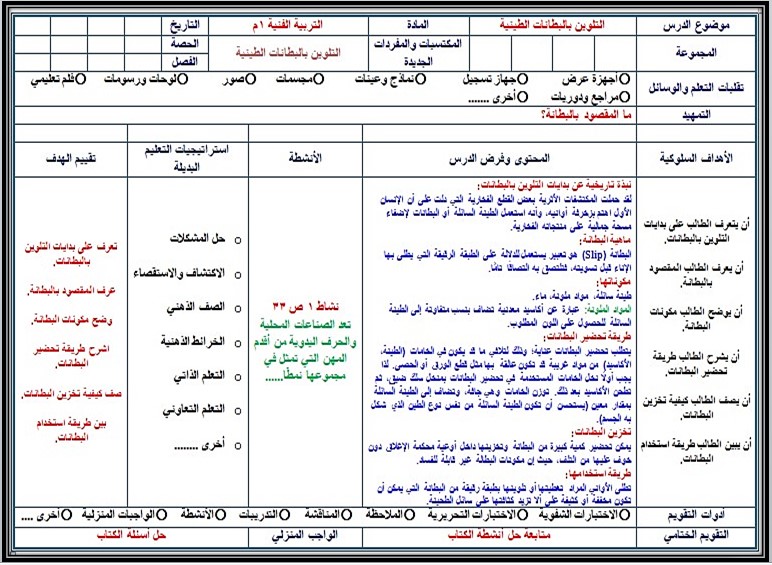 موضوع الدرس التلوين بالبطانات الطينية المادة التربية الفنية ١م التاريخ
المجموعة المكتسبات والمفردات الجديدة التلوين بالبطانات الطينية الحصة
الفصل
تقنيات التعلم والوسائل أجهزة عرض جهاز تسجيل نماذج وعينات مجسمات صور لوحات ورسومات فلم تعليمي
مراجع ودوريات أخرى .......
التمهيد ما المقصود بالبطانة؟
الأهداف السلوكية المحتوى وفرض الدرس الأنشطة استراتيجيات التعليم البديلة تقييم الهدف
أن يتعرف الطالب على بدايات
التلوين بالبطانات.
أن يعرف الطالب المقصود
بالبطانة.
أن يوضح الطالب مكونات
البطانة.
أن يشرح الطالب طريقة
تحضير البطانات.
أن يصف الطالب كيفية تخزين
البطانات.
أن يبين الطالب طريقة استخدام
البطانات.
نبذة تاريخية عن بدايات التلوين بالبطانات:
لقد حملت المكتشفات الأثرية بعض القطع الفخارية التي دلت على أن الإنسان
الأول اهتم بزخرفة أوانيه، وأنه استعمل الطينة السائلة أو البطانات لإضفاء
مسحة جمالية على منتجاته الفخارية.
ماهية البطانة:
البطانة (Slip) هو تعبير يستعمل للدلالة على الطبقة الرقيقة التي يطلى بها
الإناء قبل تسويته، فتلتصق به التصاقا تاما.
مكوناتها:
طينة سائلة، مواد ملونة، ماء.
المواد الملونة: عبارة عن أكاسيد معدنية تضاف بنسب متفاوتة إلى الطينة
السائلة للحصول على اللون المطلوب.
طريقة تحضير البطانات:
يتطلب تحضير البطانات عناية؛ وذلك لتلافي ما قد يكون في الخامات (الطينة،
الأكاسيد) من مواد غريبة قد تكون عالقة بها مثل قطع الورق أو الحصى. لذا
يجب أولا نخل الخامات المستخدمة في تحضير البطانات بمنخل سلك ضيق، ثم
تطحن الأكاسيد بعد ذلك. توزن الخامات وهي جافة. وتضاف إلى الطينة السائلة
بمقدار معين (يستحسن أن تكون الطينة السائلة من نفس نوع الطين الذي شكل
به الجسم).
تخزين البطانات:
يمكن تحضير كمية كبيرة من البطانة وتخزينها داخل أوعية محكمة الإغلاق دون
خوف عليها من التلف، حيث إن مكونات البطانة غير قابلة للفساد.
طريقة استخدامها:
تطلى الأواني المراد تغطيتها أو تلوينها بطبقة رقيقة من البطانة التي يمكن أن
تكون مخففة أو كثيفة على ألا تزيد كثافتها على سائل الطحينة.
نشاط ١ ص ٣٣
تعد الصناعات المحلية
والحرف اليدوية من أقدم
المهن التي تمثل في
مجموعها نمطًا......
حل المشكلات
الاكتشاف والاستقصاء
الصف الذهني
الخرائط الذهنية
التعلم الذاتي
التعلم التعاوني
أخرى ........
تعرف على بدايات التلوين
بالبطانات.
عرف المقصود بالبطانة.
وضح مكونات البطانة.
اشرح طريقة تحضير
البطانات.
صف كيفية تخزين البطانات.
بين طريقة استخدام
البطانات.
أدوات التقويم الاختبارات الشفوية الاختبارات التحريرية الملاحظة المناقشة التدريبات الأنشطة الواجبات المنزلية أخرى ....
التقويم الختامي متابعة حل أنشطة الكتاب الواجب المنزلي حل أسئلة الكتاب